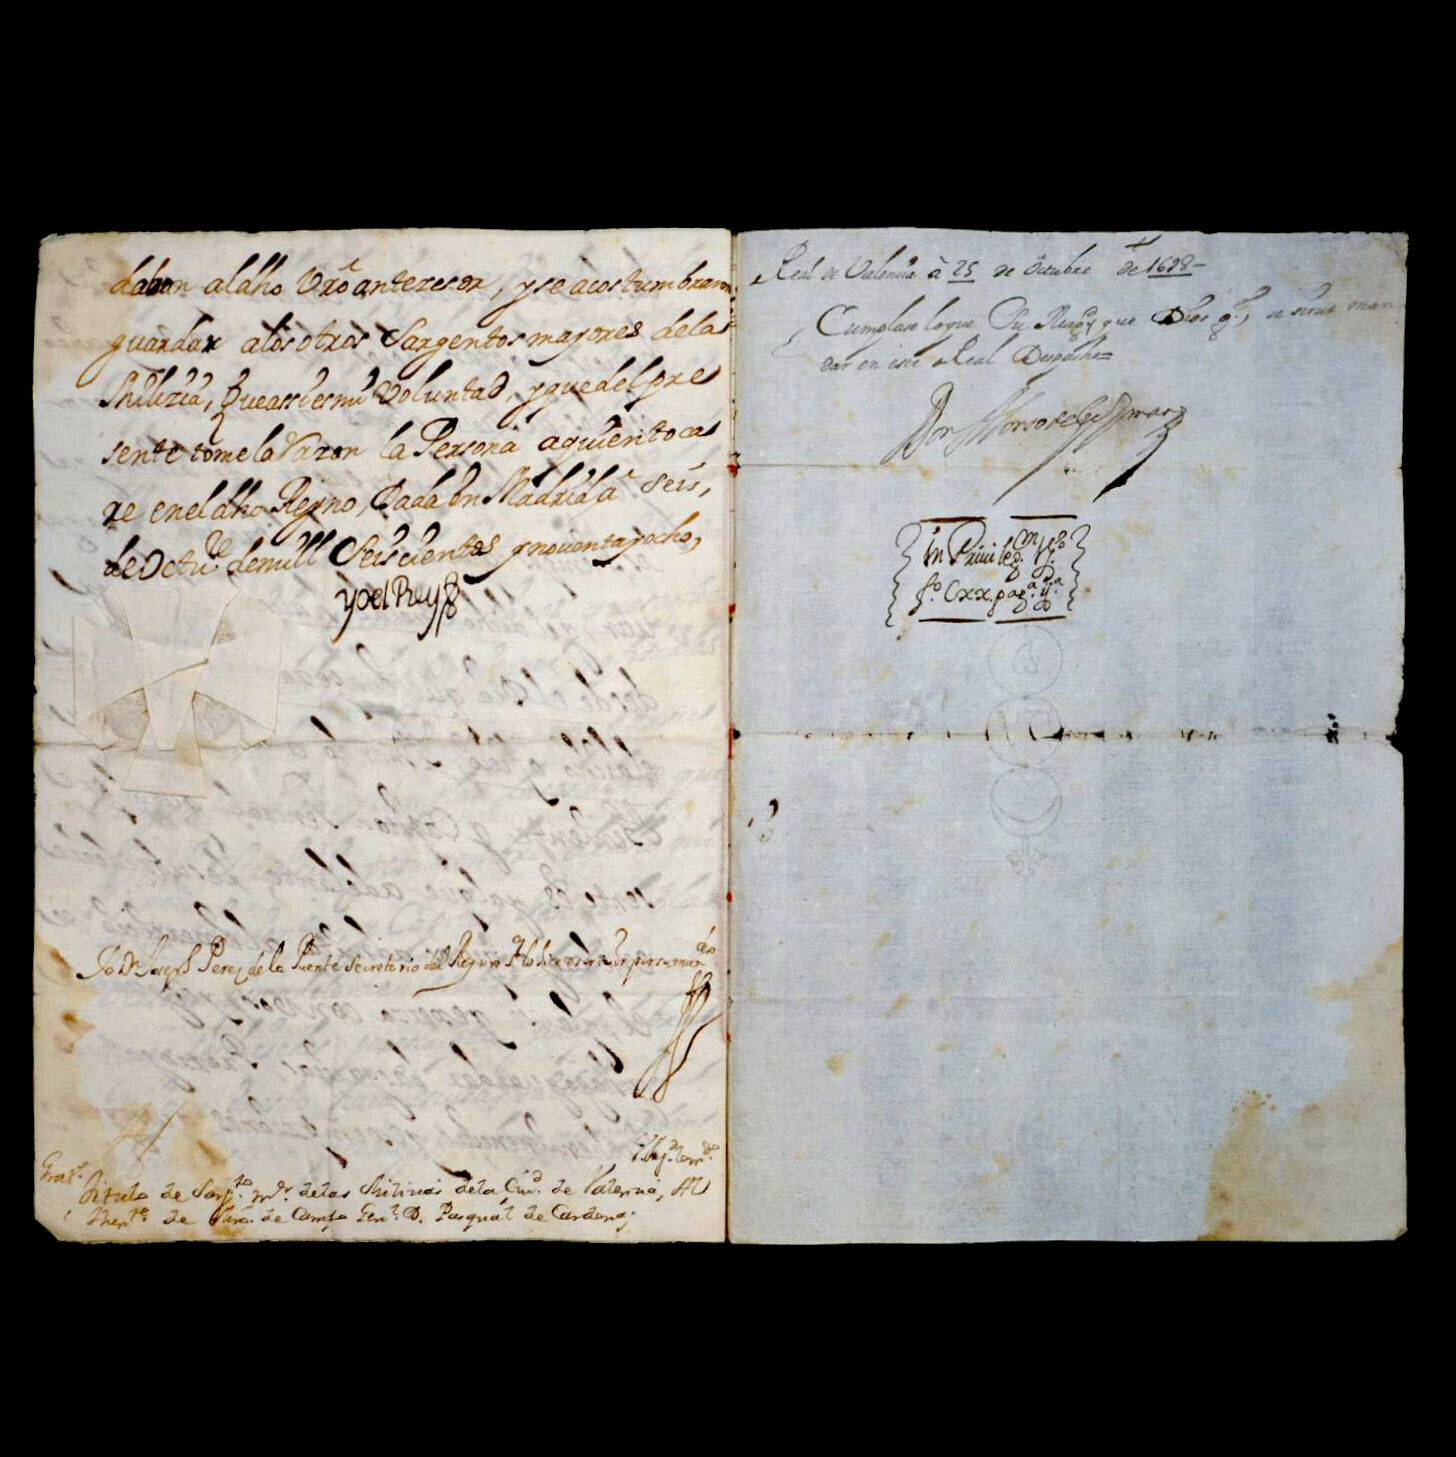 daban al dho Vro antecesor, y se acostumbraron
guardar a los otros Sargentos mayores de la
Milizia, Que assi es mi Voluntad, y que del pre
sente tome la Razon la Persona a quien tocas
re en el dho Reyno, Dada En Madrid a Seis,
de Octu.e de mill Seiscientos y noventa y ocho,
yo el Rey
Yo Dn Joseph Perez de la Puente Secretario del Rey nro Sr lo hice escrivir por su mando
Grat.s
Titulo de Sarg.to mr. de las Milicias de la Ciud. de Valencia, Al
Then.te de Mre. de Campo Gen.l D. Pasqual de Cardona;
Real de Valencia à 25 de Octubre de 1698
Cumplase lo que Su Magd, que Dios g.e, se sirve man
dar en este Real Despacho
Don Alonso de Guzman
in Privileg.
fo. Cxx. pag.a ij.a